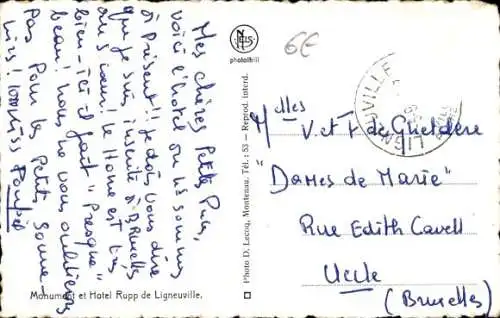 Mes chères Petites Puces,
voici l'hotel où ns sommes
à présent!! Je dois vous dire
que je suis inscrite à Bruxelles
au s cœur! Le Home est très
bien – ici il fait "Presque"
beau! nous ne vous oublions
Pas Pour les Petits Souve-
nirs! 1000 kiss Poupée
Monument et Hotel Rupp de Ligneuville.
NELS
photothill
Photo D. Lecoq, Montenau. Tél.: 53 – Reprod. interd.
6E
LIGNEUVILLE
Melles V. et F. de
"Dames de Marie"
Rue Edith Cavell
Uccle
(Bruxelles)